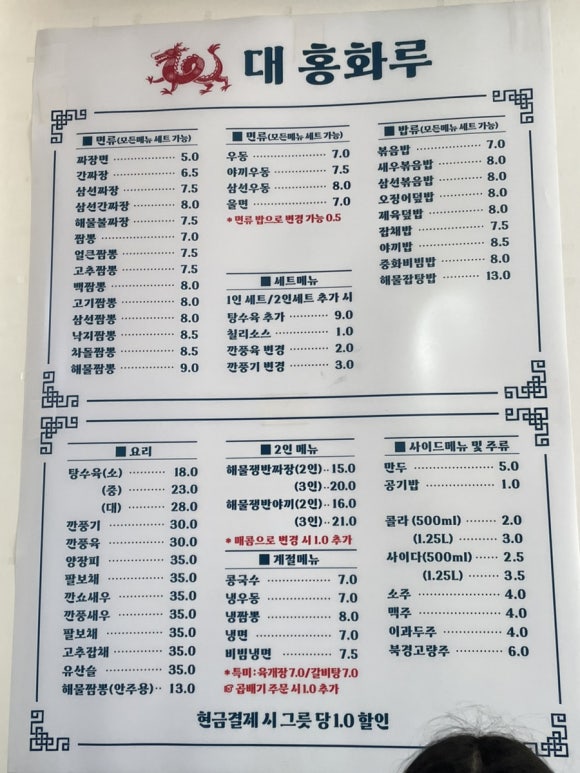 대 홍화루
■ 면류(모든메뉴 세트 가능)
짜장면 5.0
간짜장 6.5
삼선짜장 7.5
삼선간짜장 8.0
해물불짜장 7.5
짬뽕 7.0
얼큰짬뽕 7.5
고추짬뽕 7.5
백짬뽕 8.0
고기짬뽕 8.0
삼선짬뽕 8.0
낙지짬뽕 8.5
차돌짬뽕 8.5
해물짬뽕 9.0
■ 면류(모든메뉴 세트 가능)
우동 7.0
야끼우동 7.5
삼선우동 8.0
울면 7.0
* 면류 밥으로 변경 가능 0.5
■ 세트메뉴
1인 세트/2인세트 추가 시
탕수육 추가 9.0
칠리소스 1.0
깐풍육 변경 2.0
깐풍기 변경 3.0
■ 밥류(모든메뉴 세트 가능)
볶음밥 7.0
새우볶음밥 8.0
삼선볶음밥 8.0
오징어덮밥 8.0
제육덮밥 8.0
잡채밥 7.5
야끼밥 8.5
중화비빔밥 8.0
해물잡탕밥 13.0
■ 요리
탕수육(소) 18.0
(중) 23.0
(대) 28.0
깐풍기 30.0
깐풍육 30.0
양장피 35.0
팔보채 35.0
깐쇼새우 35.0
깐풍새우 35.0
팔보채 35.0
고추잡채 35.0
유산슬 35.0
해물짬뽕(안주용) 13.0
■ 2인 메뉴
해물쟁반짜장(2인) 15.0
(3인) 20.0
해물쟁반야끼(2인) 16.0
(3인) 21.0
* 매콤으로 변경 시 1.0 추가
■ 계절메뉴
콩국수 7.0
냉우동 7.0
냉짬뽕 8.0
냉면 7.0
비빔냉면 7.5
* 특미 : 육개장 7.0/갈비탕 7.0
곱배기 주문 시 1.0 추가
■ 사이드메뉴 및 주류
만두 5.0
공기밥 1.0
콜라 (500ml) 2.0
(1.25L) 3.0
사이다(500ml) 2.5
(1.25L) 3.5
소주 4.0
맥주 4.0
이과두주 4.0
북경고량주 6.0
현금결제 시 그릇 당 1.0 할인